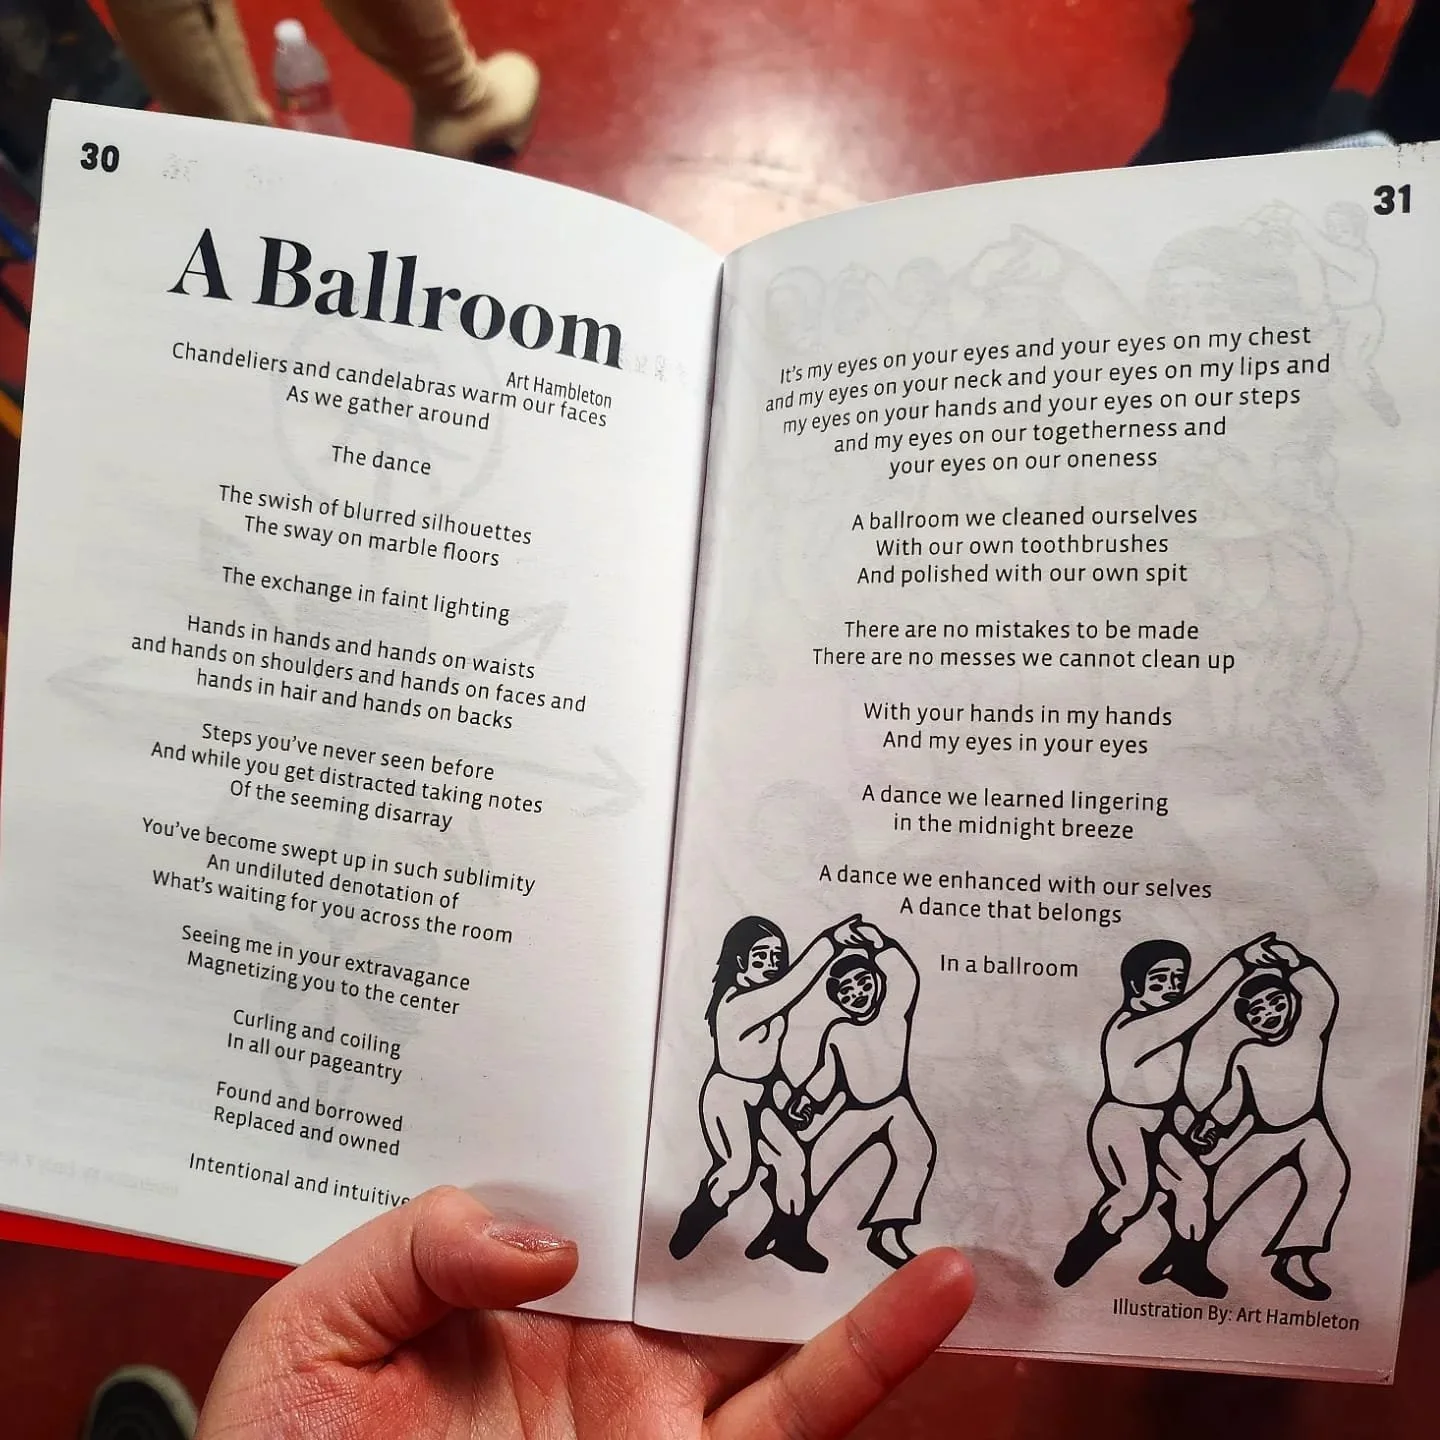 30
A Ballroom
Art Hambleton
Chandeliers and candelabras warm our faces
As we gather around
The dance
The swish of blurred silhouettes
The sway on marble floors
The exchange in faint lighting
Hands in hands and hands on waists
and hands on shoulders and hands on faces and
hands in hair and hands on backs
Steps you've never seen before
And while you get distracted taking notes
Of the seeming disarray
You've become swept up in such sublimity
An undiluted denotation of
What's waiting for you across the room
Seeing me in your extravagance
Magnetizing you to the center
Curling and coiling
In all our pageantry
Found and borrowed
Replaced and owned
Intentional and intuitive
31
It's my eyes on your eyes and your eyes on my chest
and my eyes on your neck and your eyes on my lips and
my eyes on your hands and your eyes on our steps
and my eyes on our togetherness and
your eyes on our oneness
A ballroom we cleaned ourselves
With our own toothbrushes
And polished with our own spit
There are no mistakes to be made
There are no messes we cannot clean up
With your hands in my hands
And my eyes in your eyes
A dance we learned lingering
in the midnight breeze
A dance we enhanced with our selves
A dance that belongs
In a ballroom
Illustration By: Art Hambleton